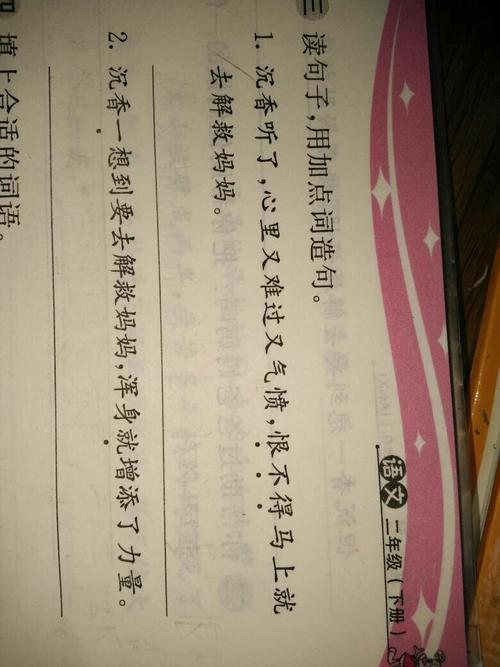 语文 二年级(下册)
三 读句子,用加点词造句。
1. 沉香听了,心里又难过又气愤,恨不得马上就
去解救妈妈。
2. 沉香一想到要去解救妈妈,浑身就增添了力量。
四 填上合适的词语。